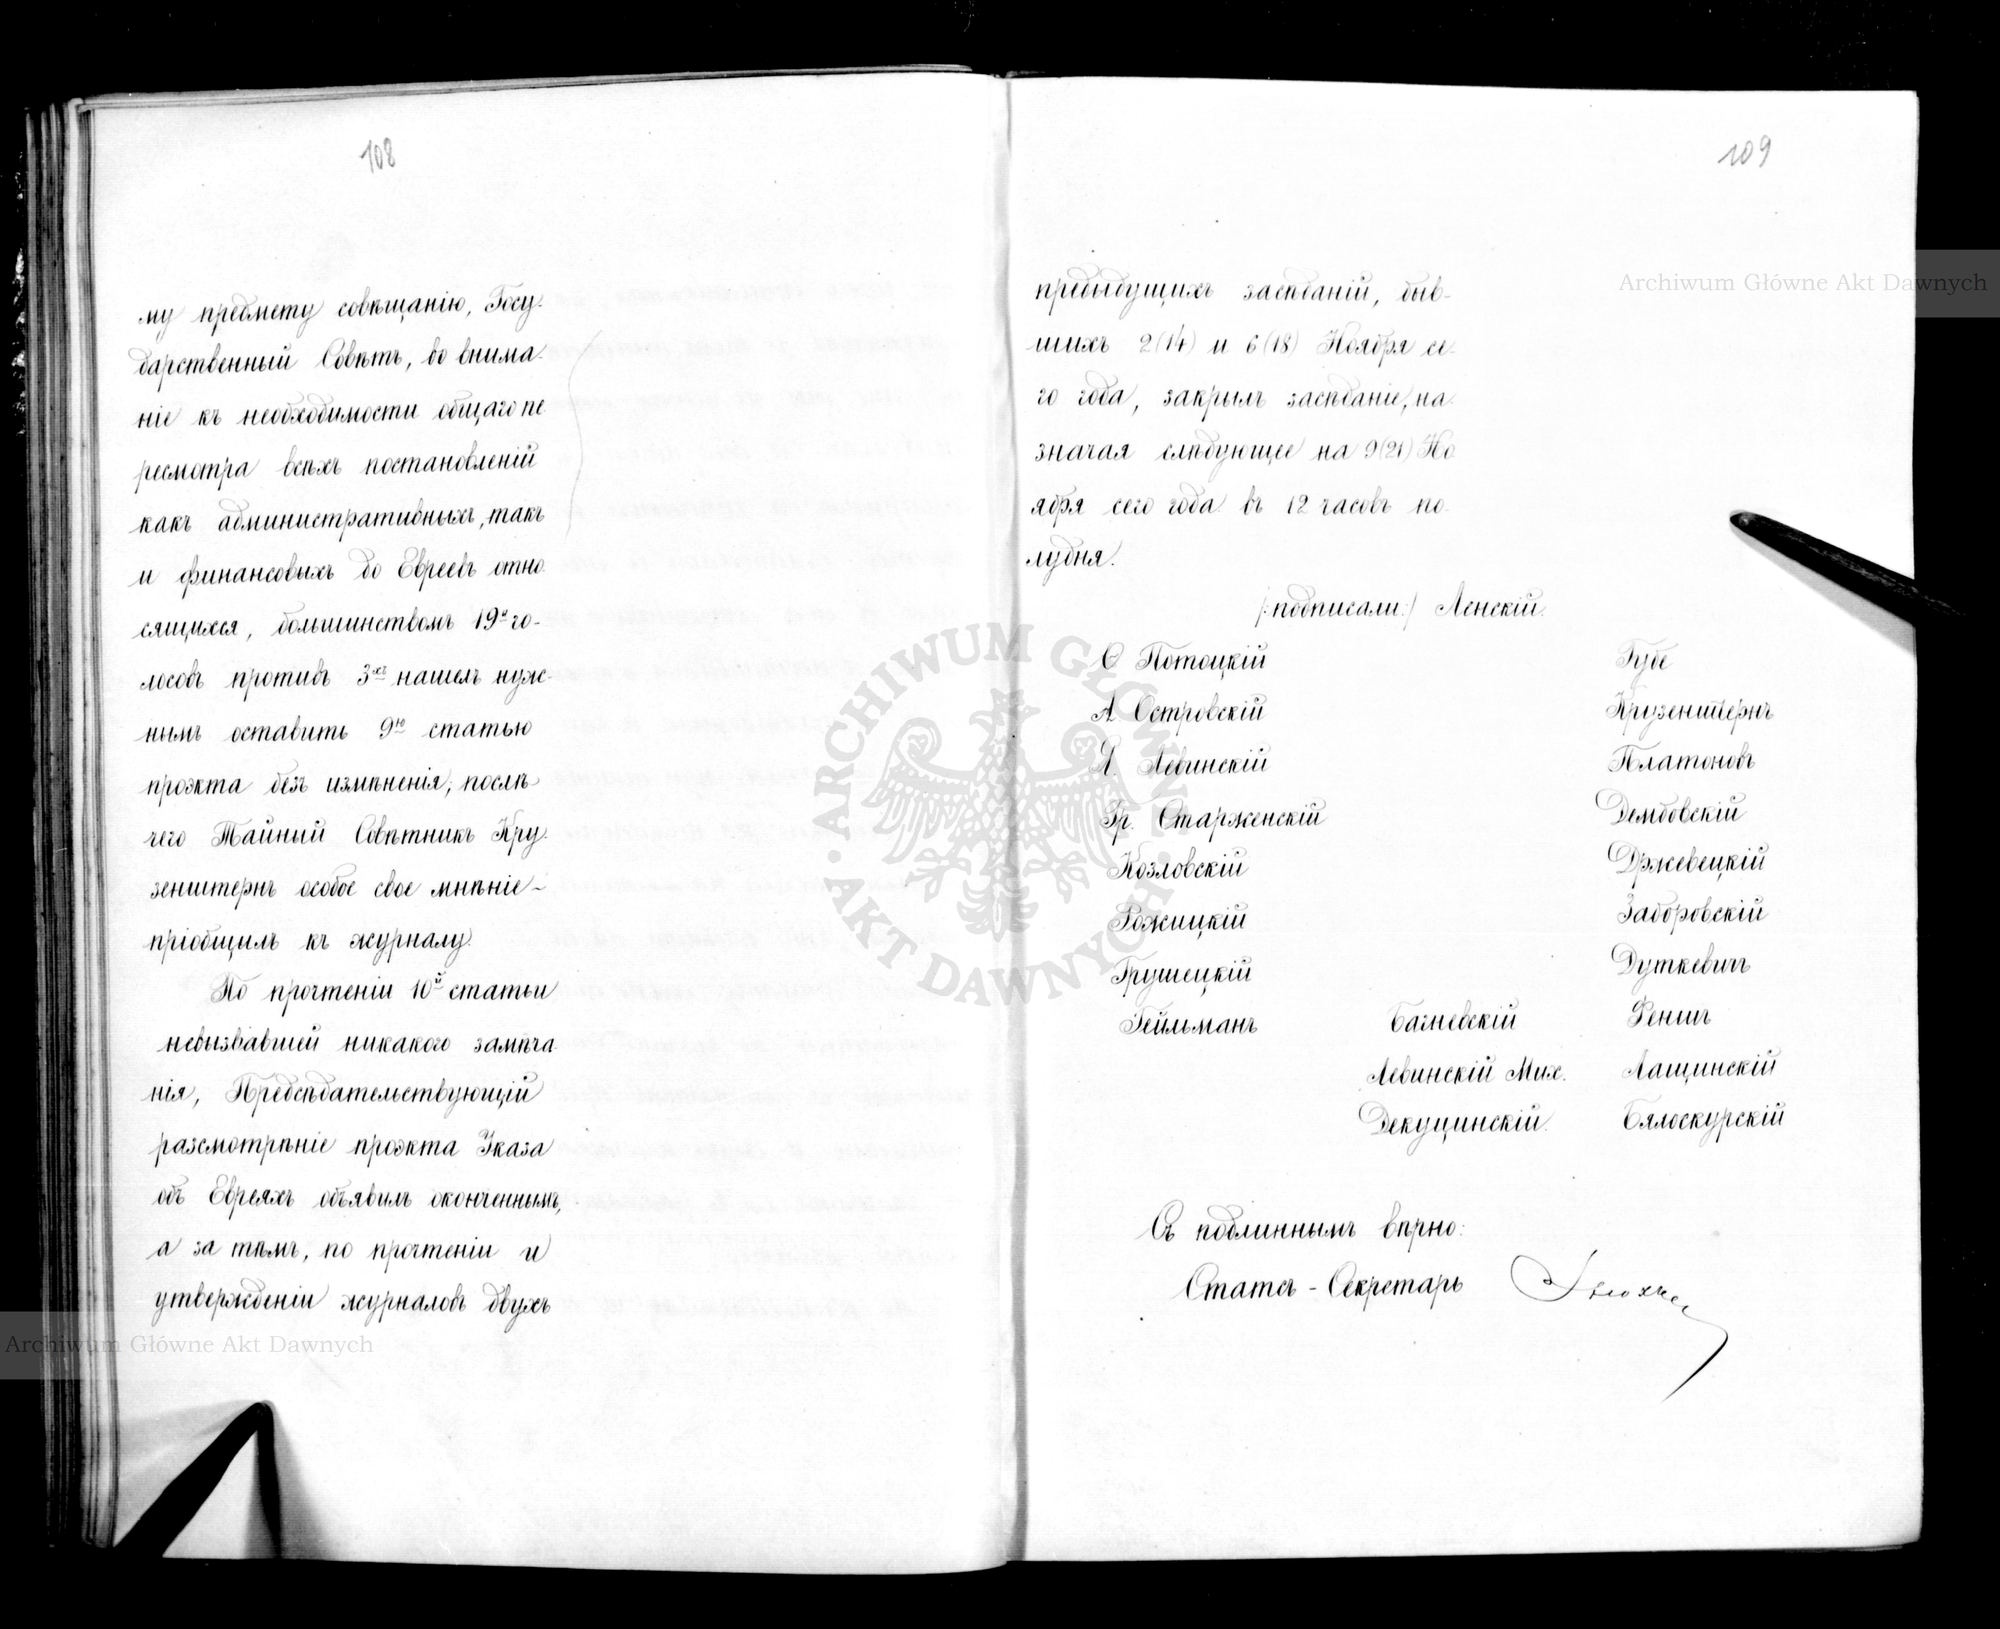 108
му предмету совѣщанію, Госу-
дарственный Совѣтъ, во внима-
ніе къ необходимости общаго пе
ресмотра всѣхъ постановленій
какъ административныхъ, такъ
и финансовыхъ до Евреевъ отно
сящихся, большинствомъ 19и го-
лосовъ противъ 3хъ нашелъ нуж-
нымъ оставить 9ю статью
проэкта безъ измѣненія; послѣ
чего Тайный Совѣтникъ Кру-
зенштернъ особое свое мнѣніе-
пріобщилъ къ журналу.
По прочтеніи 10й статьи
невызвавшей никакого замѣча
нія, Предсѣдательствующій
разсмотрѣніе проэкта Указа
объ Евреяхъ объявилъ оконченнымъ,
а за тѣмъ, по прочтеніи и
утвержденіи журналовъ двухъ
109
предыдущихъ засѣданій, быв-
шихъ 2(14) и 6(18) Ноября се-
го года, закрылъ засѣданіе, на-
значая слѣдующее на 9(21) Но
ября сего года въ 12 часовъ по-
лудня.
/:подписали:/ Ленскій.
С. Потоцкій Губе
А. Островскій Крузенштернъ
Я. Левинскій Платоновъ
Гр. Старженскій Дембовскій
Козловскій Држевецкій
Рожицкій Заборовскій
Грушецкій Дуткевичъ
Гейльманъ Багневскій Феншъ
Левинскій Мих. Лащинскій
Декуцинскій. Бялоскурскій
Съ подлиннымъ вѣрно:
Статсъ-Секретарь
Archiwum Główne Akt Dawnych
Archiwum Główne Akt Dawnych
ARCHIWUM GŁÓWNE · AKT DAWNYCH ·